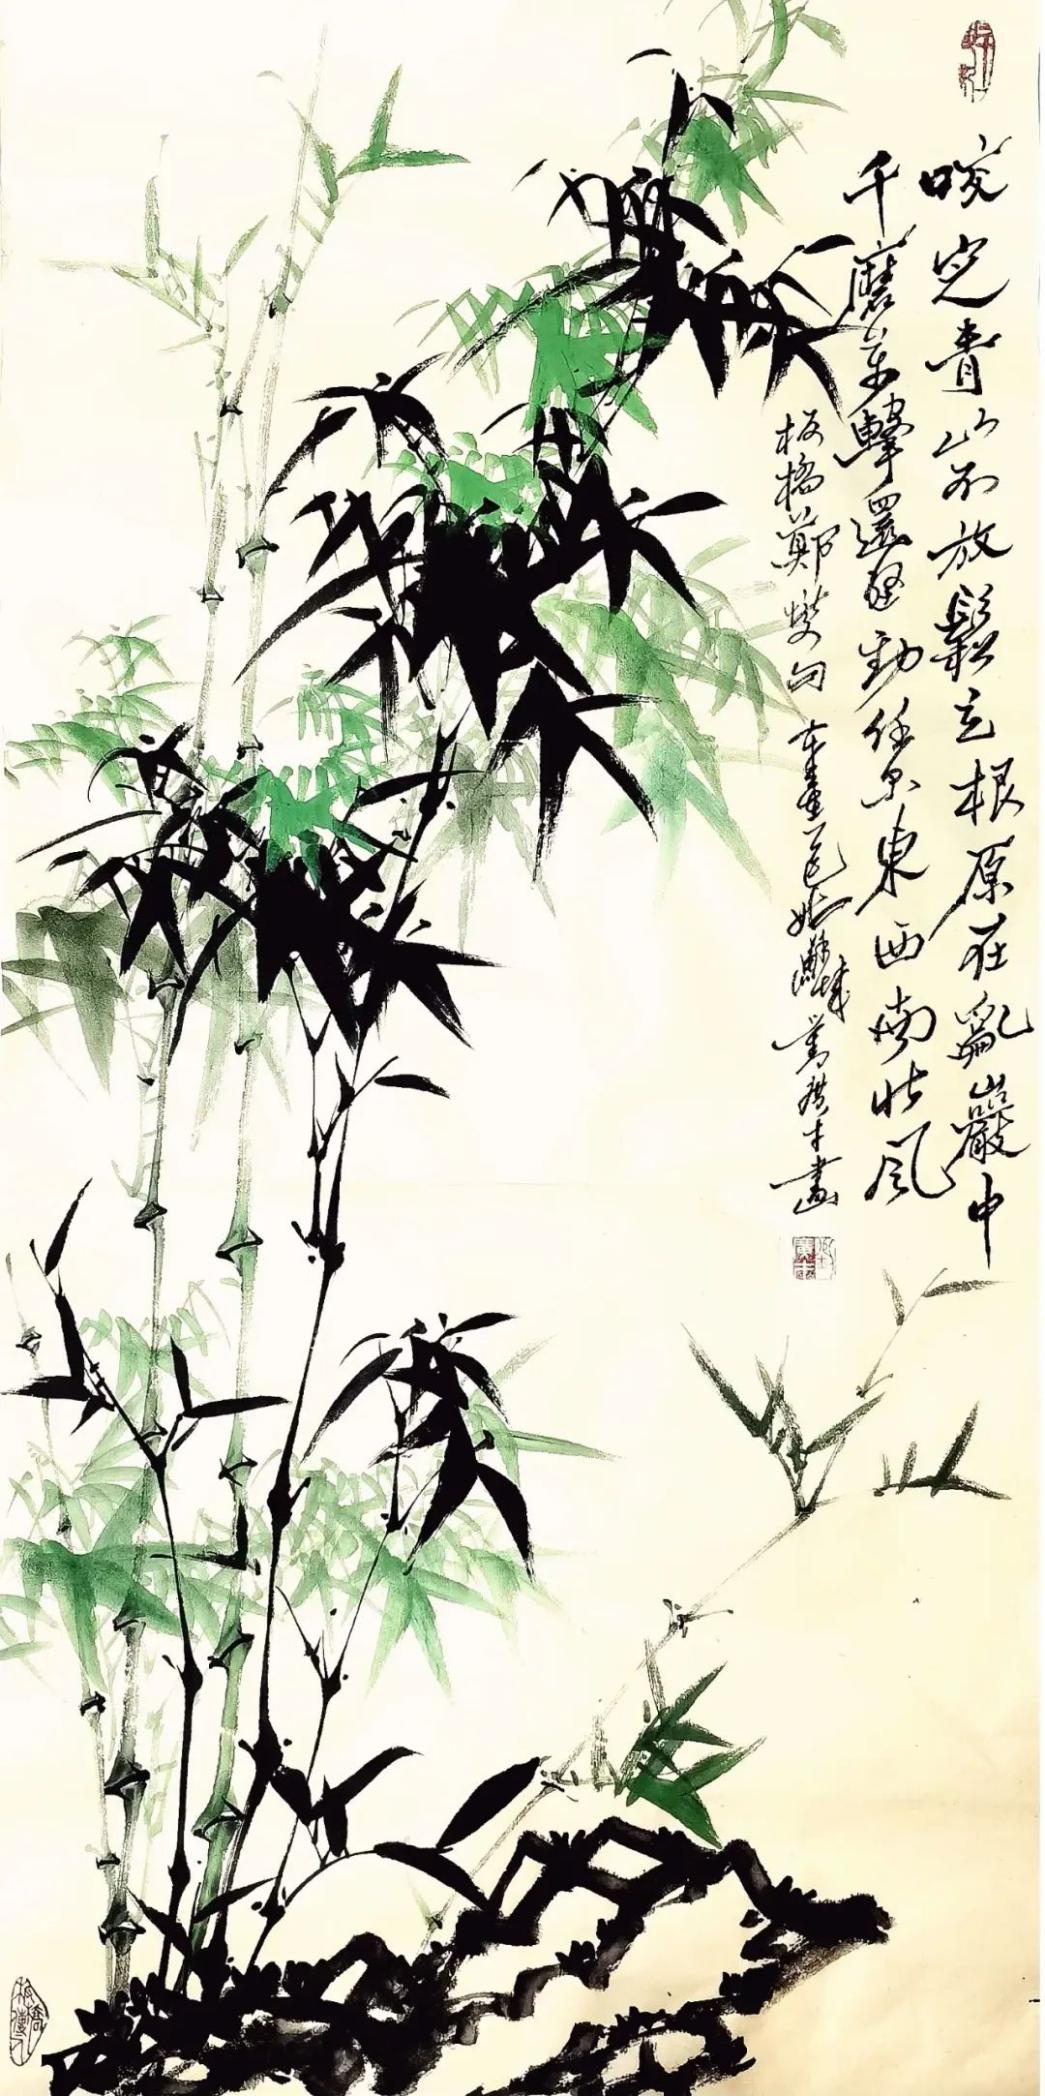 咬定青山不放鬆立根原在亂巖中
千磨萬擊還堅勁任尔東西南北風
板橋鄭燮句
廣才畫